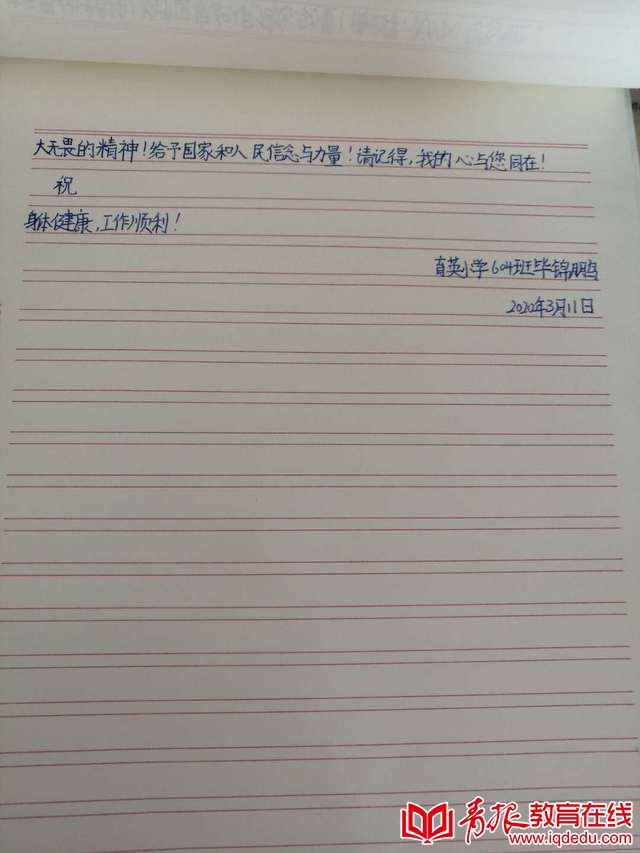 大无畏的精神！给予国家和人民信念与力量！请记得，我的心与您同在！
祝
身体健康，工作顺利！
育英小学604班毕锦鹏
2020年3月11日
青报教育在线
www.iqdedu.com